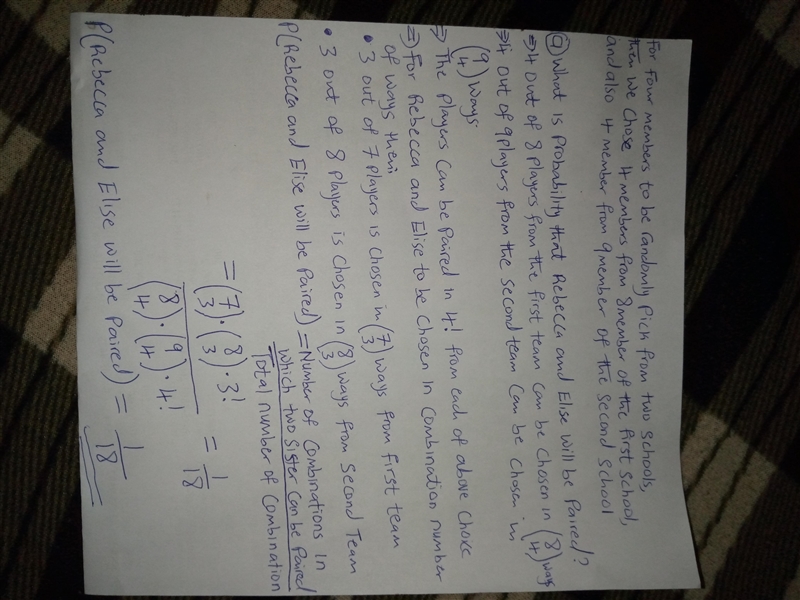 For four members to be randomly pick from two schools,
then we chose 4 members from 8 member of the first school,
and also 4 member from 9 member of the second school
(a) What is Probability that Rebecca and Elise will be Paired?
⇒ 4 out of 8 players from the first team can be chosen in (8/4) ways
⇒ 4 out of 9 players from the second team can be chosen in
(9/4) ways
⇒ The players can be Paired in 4! from each of above choice
⇒ For Rebecca and Elise to be chosen in Combination number
of ways then:
• 3 out of 7 players is chosen in (7/3) ways from first team
• 3 out of 8 players is chosen in (8/3) ways from second Team
P(Rebecca and Elise will be paired) = Number of Combinations in
which two sister can be paired
Total number of combination
= (7/3)·(8/3)·3! = 1/18
(8/4)·(9/4)·4!
P(Rebecca and Elise will be paired) = 1/18